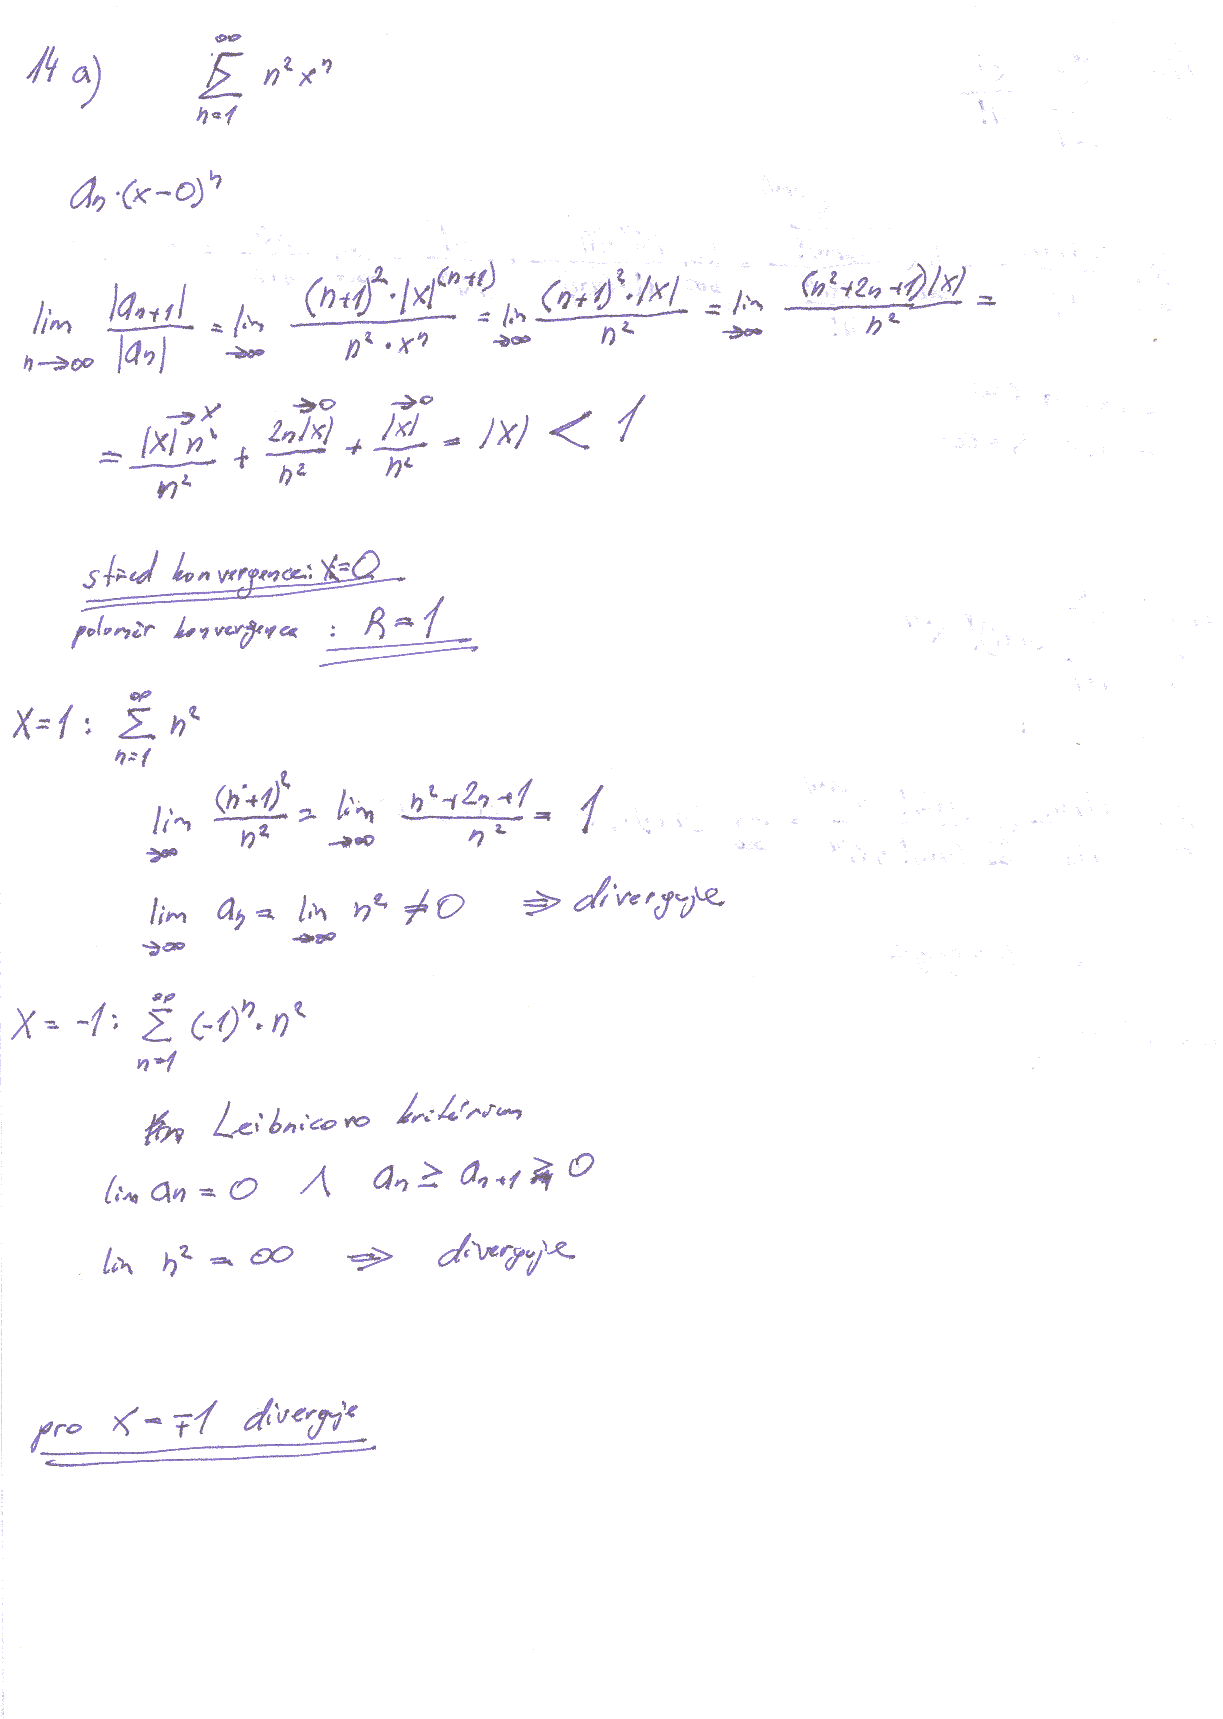 14 a) ∑_{n=1}^{∞} n² xⁿ
aₙ·(x-0)ⁿ
lim_{n→∞} |aₙ₊₁|/|aₙ| = lim_{→∞} (n+1)²·|x|^{(n+1)}/(n²·xⁿ) = lim_{→∞} (n+1)²·|x|/n² = lim_{→∞} (n²+2n+1)|x|/n² =
= |x|n²/n² (→x) + 2n|x|/n² (→0) + |x|/n² (→0) = |x| < 1
střed konvergence: x=0
poloměr konvergence : R=1
x=1: ∑_{n=1}^{∞} n²
lim_{→∞} (n+1)²/n² = lim_{→∞} (n²+2n+1)/n² = 1
lim_{→∞} aₙ = lim_{→∞} n² ≠ 0 ⇒ diverguje
x = -1: ∑_{n=1}^{∞} (-1)ⁿ·n²
Leibnicovo kritérium
lim aₙ = 0 ∧ aₙ ≥ aₙ₊₁ ≥ 0
lim n² = ∞ ⇒ diverguje
pro x = ∓1 diverguje